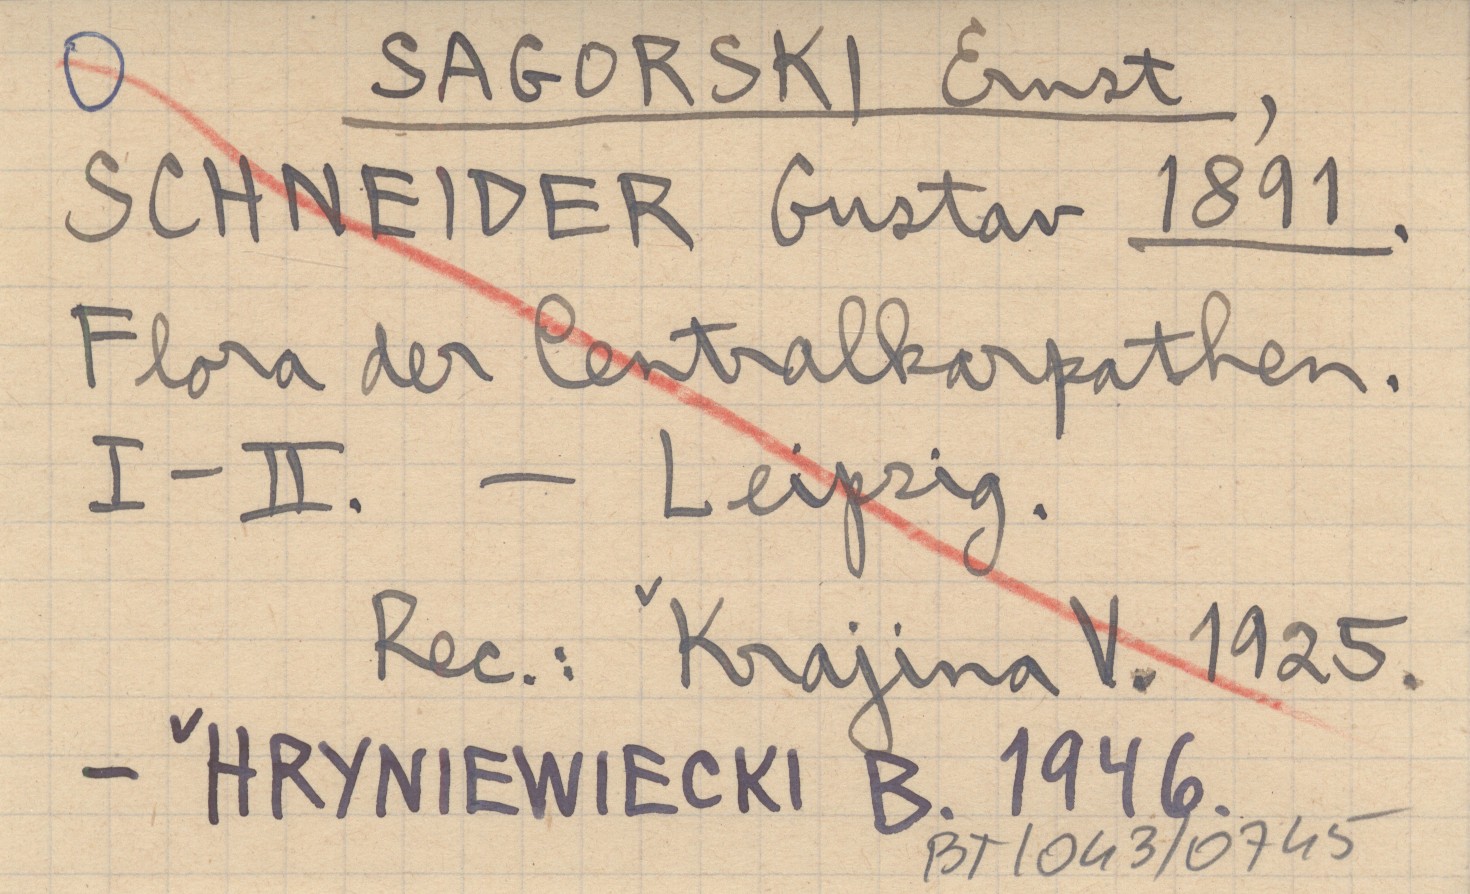 SAGORSKI Ernst,
SCHNEIDER Gustav 1891.
Flora der Centralkarpathen.
I-II. — Leipzig.
Rec.: ˇKrajina V. 1925.
- ˇHRYNIEWIECKI B. 1946.
BT/043/0745